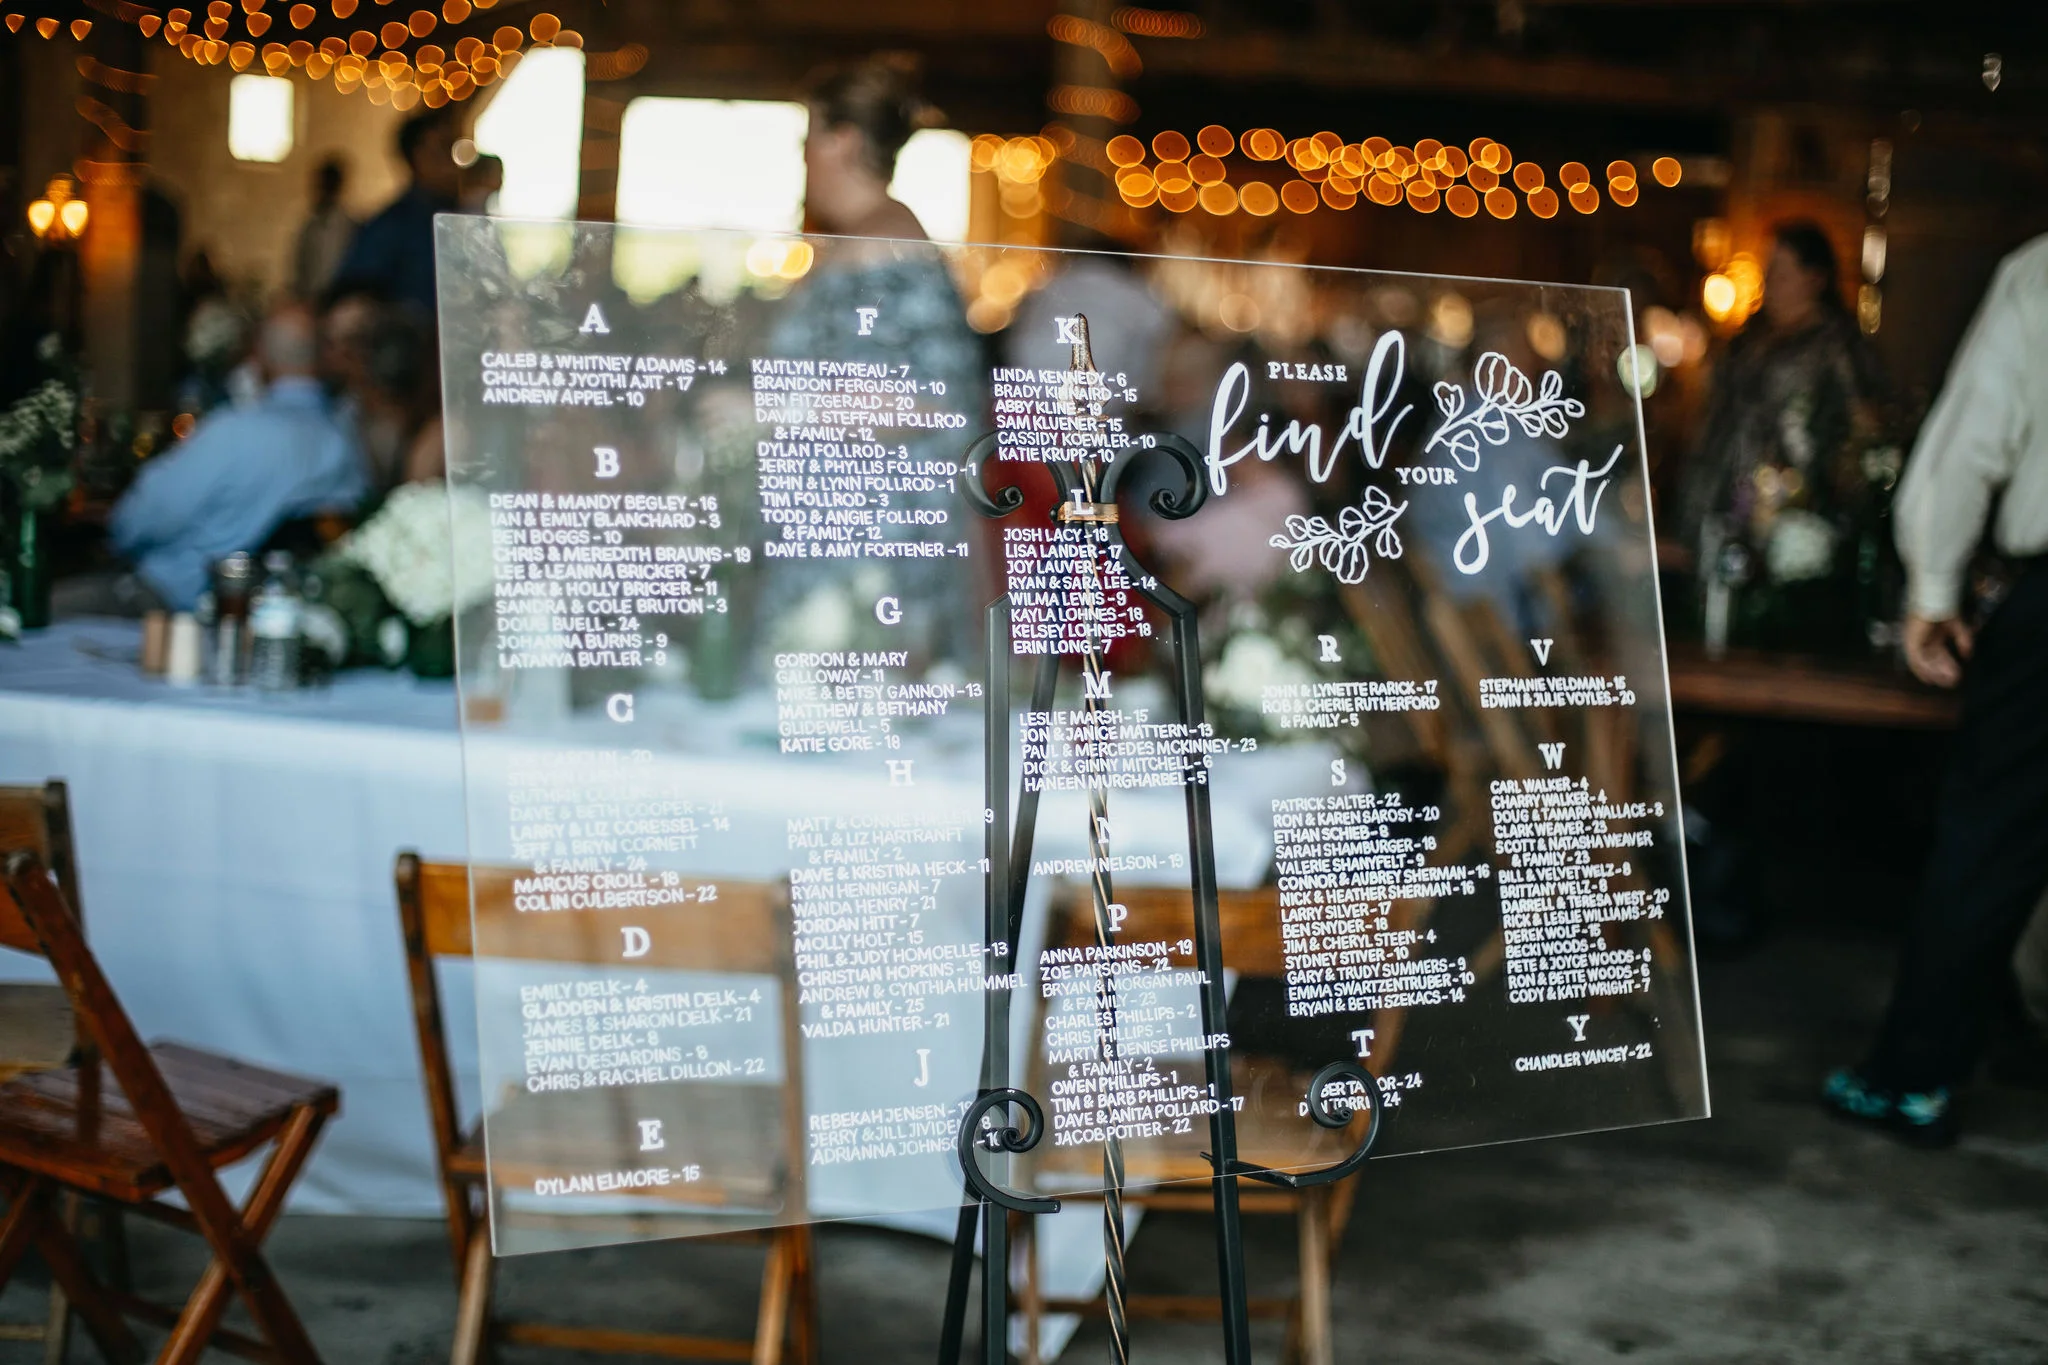 A
CALEB & WHITNEY ADAMS - 14
CHALLA & JYOTHI AJIT - 17
ANDREW APPEL - 10
B
DEAN & MANDY BEGLEY - 16
IAN & EMILY BLANCHARD - 3
BEN BOGGS - 10
CHRIS & MEREDITH BRAUNS - 19
LEE & LEANNA BRICKER - 7
MARK & HOLLY BRICKER - 11
SANDRA & COLE BRUTON - 3
DOUG BUELL - 24
JOHANNA BURNS - 9
LATANYA BUTLER - 9
C
- 20
STEVEN
GUTHRIE
DAVE & BETH COOPER - 21
LARRY & LIZ CORESSEL - 14
JEFF & BRYN CORNETT
& FAMILY - 24
MARCUS CROLL - 18
COLIN CULBERTSON - 22
D
EMILY DELK - 4
GLADDEN & KRISTIN DELK - 4
JAMES & SHARON DELK - 21
JENNIE DELK - 8
EVAN DESJARDINS - 8
CHRIS & RACHEL DILLON - 22
E
DYLAN ELMORE - 15
F
KAITLYN FAVREAU - 7
BRANDON FERGUSON - 10
BEN FITZGERALD - 20
DAVID & STEFFANI FOLLROD
& FAMILY - 12
DYLAN FOLLROD - 3
JERRY & PHYLLIS FOLLROD - 1
JOHN & LYNN FOLLROD - 1
TIM FOLLROD - 3
TODD & ANGIE FOLLROD
& FAMILY - 12
DAVE & AMY FORTENER - 11
G
GORDON & MARY
GALLOWAY - 11
MIKE & BETSY GANNON - 13
MATTHEW & BETHANY
GLIDEWELL - 5
KATIE GORE - 18
H
MATT & CONNIE
PAUL & LIZ HARTRANFT
& FAMILY - 2
DAVE & KRISTINA HECK - 11
RYAN HENNIGAN - 7
WANDA HENRY - 21
JORDAN HITT - 7
MOLLY HOLT - 15
PHIL & JUDY HOMOELLE - 13
CHRISTIAN HOPKINS - 19
ANDREW & CYNTHIA HUMMEL
& FAMILY - 25
VALDA HUNTER - 21
J
REBEKAH JENSEN -
JERRY & JILL JIVIDEN 8
ADRIANNA JOHNSO - 10
K
LINDA KENNEDY - 6
BRADY KINNAIRD - 15
ABBY KLINE - 19
SAM KLUENER - 15
CASSIDY KOEWLER - 10
KATIE KRUPP - 10
L
JOSH LACY - 18
LISA LANDER - 17
JOY LAUVER - 24
RYAN & SARA LEE - 14
WILMA LEWIS - 9
KAYLA LOHNES - 18
KELSEY LOHNES - 18
ERIN LONG - 7
M
LESLIE MARSH - 15
JON & JANICE MATTERN - 13
PAUL & MERCEDES MCKINNEY - 23
DICK & GINNY MITCHELL - 6
HANEEN MURGHARBEL - 5
N
ANDREW NELSON - 19
P
ANNA PARKINSON - 19
ZOE PARSONS - 22
BRYAN & MORGAN PAUL
& FAMILY - 23
CHARLES PHILLIPS - 2
CHRIS PHILLIPS - 1
MARTY & DENISE PHILLIPS
& FAMILY - 2
OWEN PHILLIPS - 1
TIM & BARB PHILLIPS - 1
DAVE & ANITA POLLARD - 17
JACOB POTTER - 22
PLEASE
find
YOUR
seat
R
JOHN & LYNETTE RARICK - 17
ROB & CHERIE RUTHERFORD
& FAMILY - 5
S
PATRICK SALTER - 22
RON & KAREN SAROSY - 20
ETHAN SCHIEB - 8
SARAH SHAMBURGER - 18
VALERIE SHANYFELT - 9
CONNOR & AUBREY SHERMAN - 16
NICK & HEATHER SHERMAN - 16
LARRY SILVER - 17
BEN SNYDER - 18
JIM & CHERYL STEEN - 4
SYDNEY STIVER - 10
GARY & TRUDY SUMMERS - 9
EMMA SWARTZENTRUBER - 10
BRYAN & BETH SZEKACS - 14
T
BER TA OR - 24
TORRI 24
V
STEPHANIE VELDMAN - 15
EDWIN & JULIE VOYLES - 20
W
CARL WALKER - 4
CHARRY WALKER - 4
DOUG & TAMARA WALLACE - 3
CLARK WEAVER - 23
SCOTT & NATASHA WEAVER
& FAMILY - 23
BILL & VELVET WELZ - 8
BRITTANY WELZ - 8
DARRELL & TERESA WEST - 20
RICK & LESLIE WILLIAMS - 24
DEREK WOLF - 15
BECKI WOODS - 6
PETE & JOYCE WOODS - 6
RON & BETTE WOODS - 6
CODY & KATY WRIGHT - 7
Y
CHANDLER YANCEY - 22